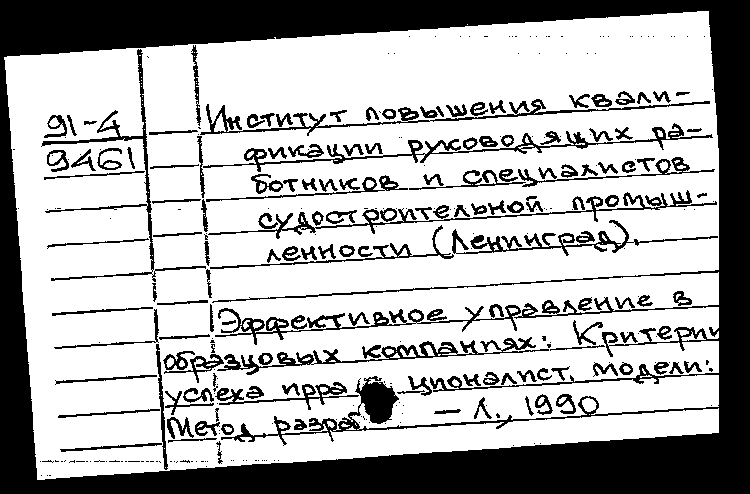 91-4
9461
Институт повышения квали-
фикации руководящих ра-
ботников и специалистов
судостроительной промыш-
ленности (Ленинград).
Эффективное управление в
образцовых компаниях: Критерии
успеха ционалист. модели:
Метод. разраб. – Л., 1990